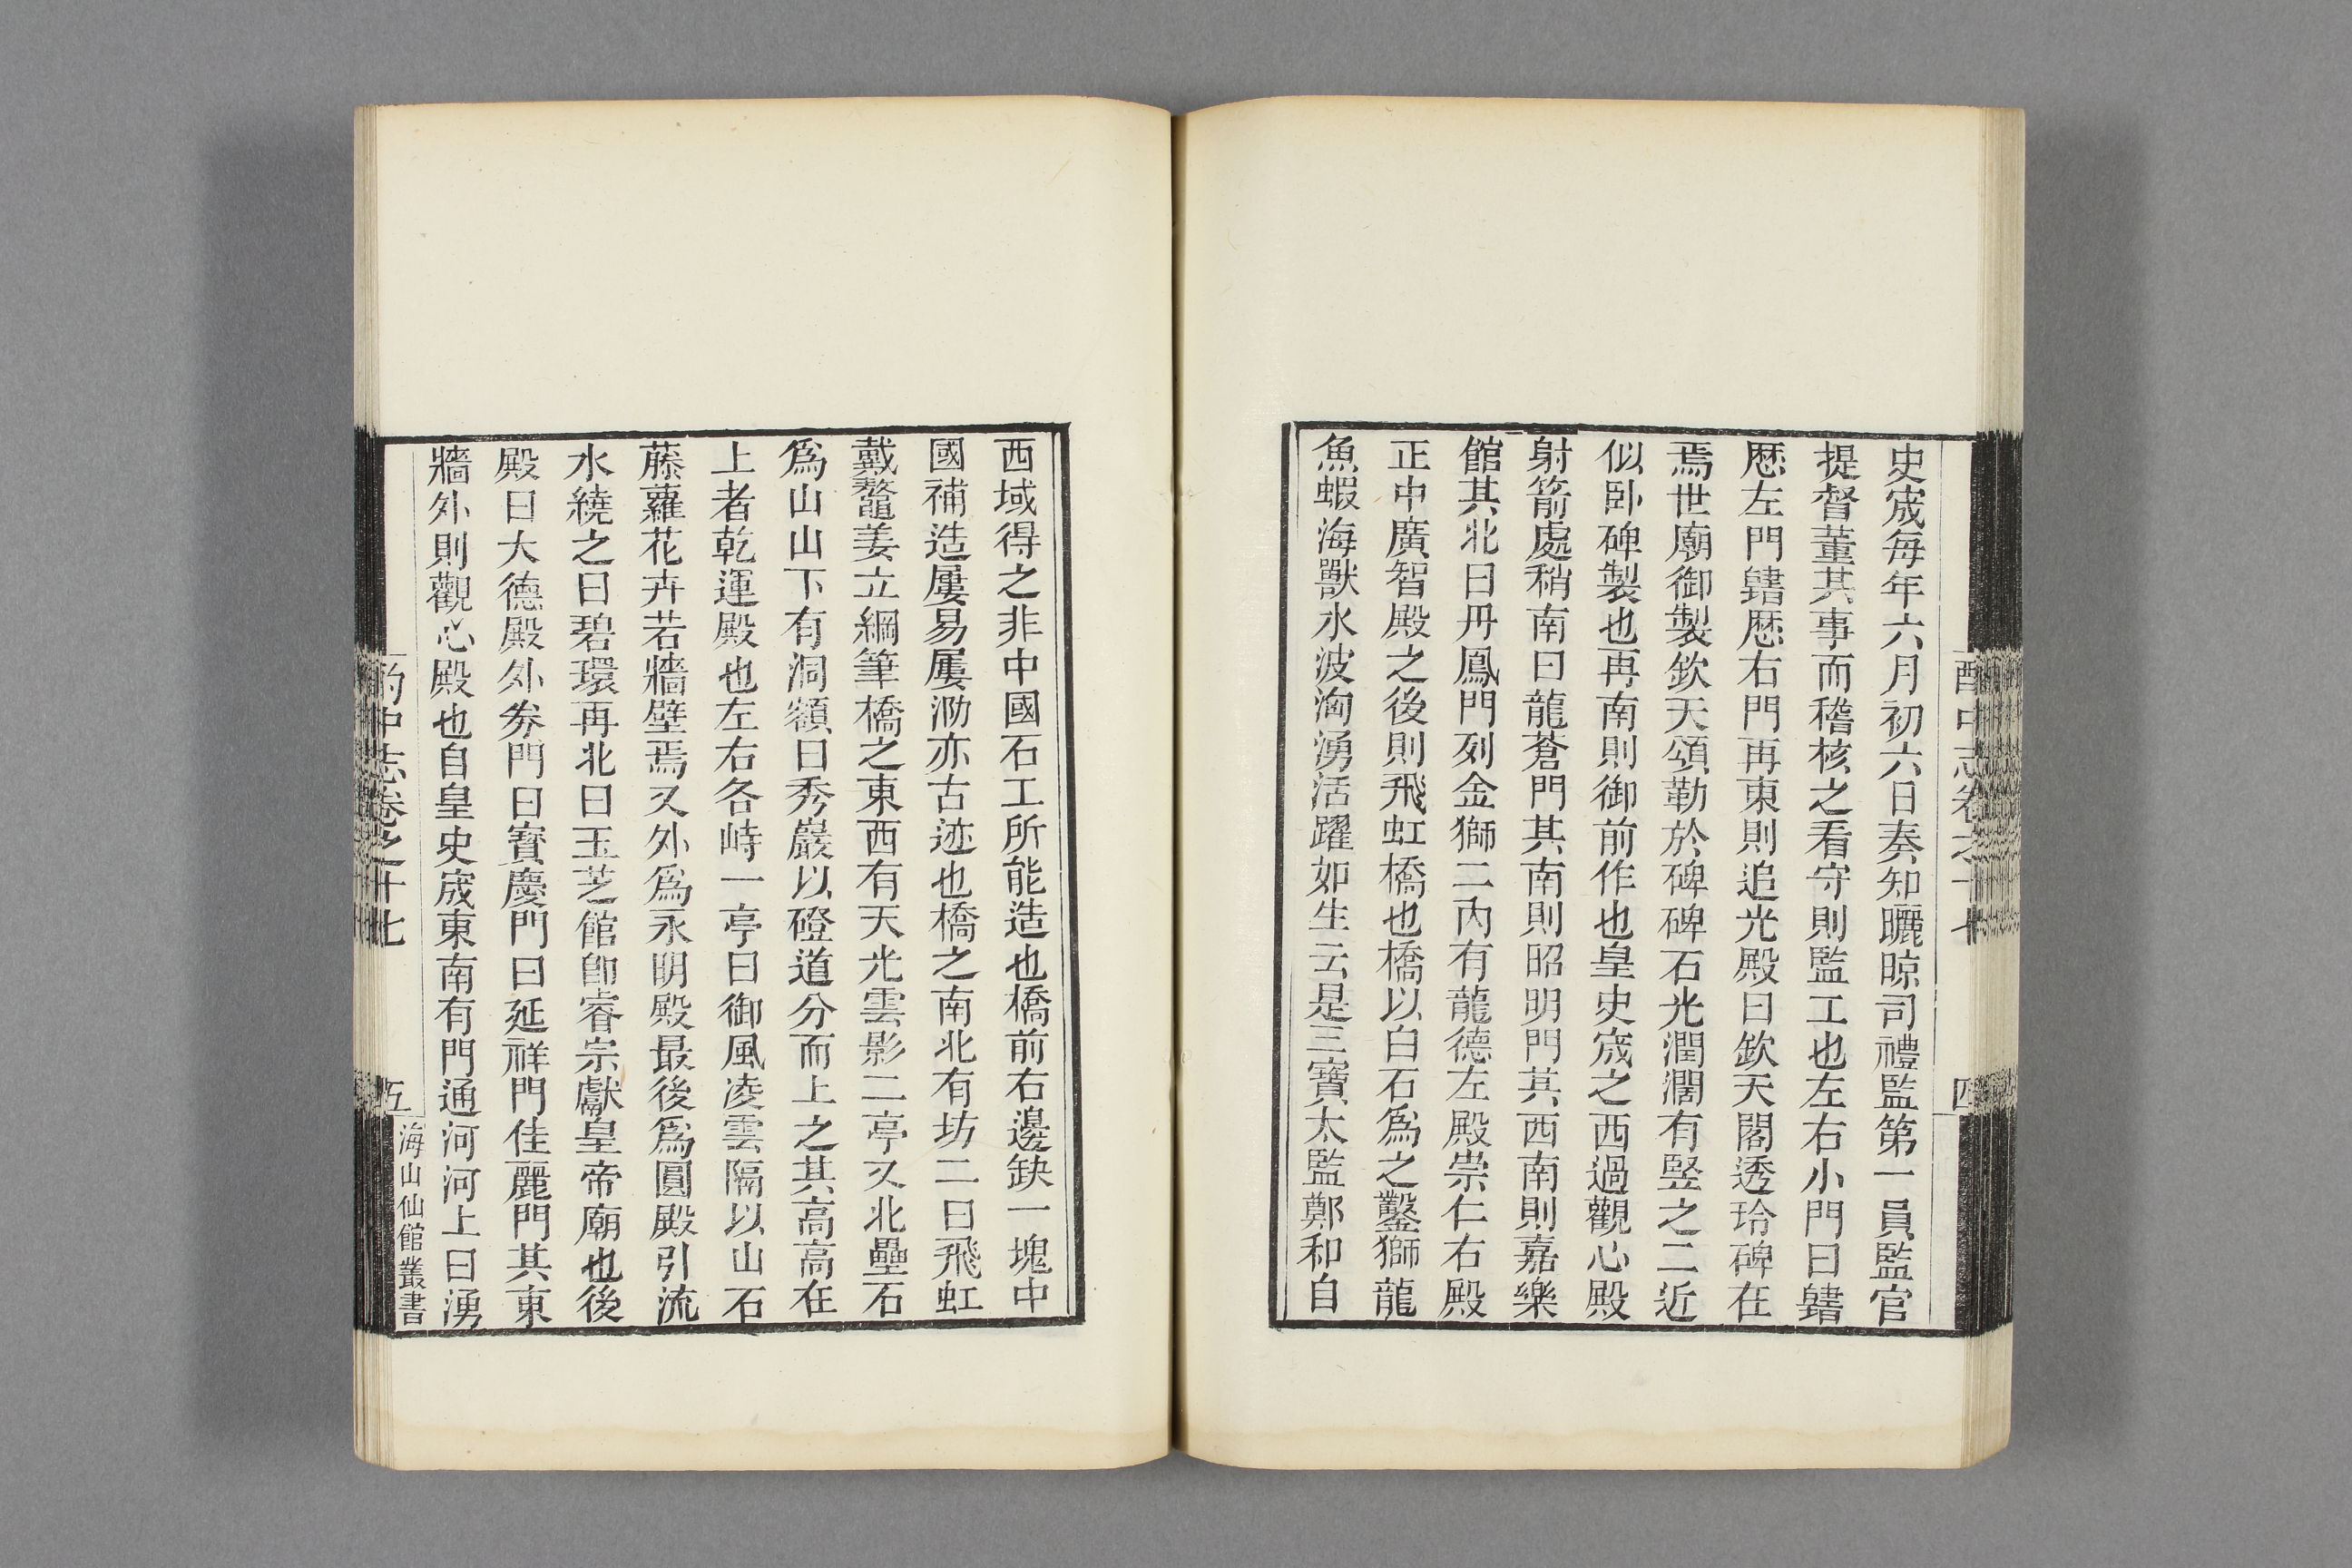 史宬每年六月初六日奏知曬晾司禮監第一員監官
提督董其事而稽核之看守則監工也左右小門曰䦂
歷左門䦂歷右門再東則追光殿曰欽天閣透玲碑在
焉世廟御製欽天頌勒於碑碑石光潤濶有竪之二近
似卧碑製也再南則御前作也皇史宬之西過觀心殿
射箭處稍南曰龍蒼門其南則昭明門其西南則嘉樂
館其北曰丹鳳門列金獅二內有龍德左殿崇仁右殿
正中廣智殿之後則飛虹橋也橋以白石爲之鑿獅龍
魚蝦海獸水波洶湧活躍如生云是三寶太監鄭和自
酌中志卷之十七
四
西域得之非中國石工所能造也橋前右邊缺一塊中
國補造屢易屢泐亦古迹也橋之南北有坊二曰飛虹
戴鰲姜立綱筆橋之東西有天光雲影二亭又北壘石
爲山山下有洞額曰秀巖以磴道分而上之其高高在
上者乾運殿也左右各峙一亭曰御風凌雲隔以山石
藤蘿花卉若牆壁焉又外爲永明殿最後爲圓殿引流
水繞之曰碧環再北曰玉芝館卽睿宗獻皇帝廟也後
殿曰大德殿外券門曰寳慶門曰延祥門佳麗門其東
牆外則觀心殿也自皇史宬東南有門通河河上曰湧
酌中志卷之十七
五
海山仙館叢書